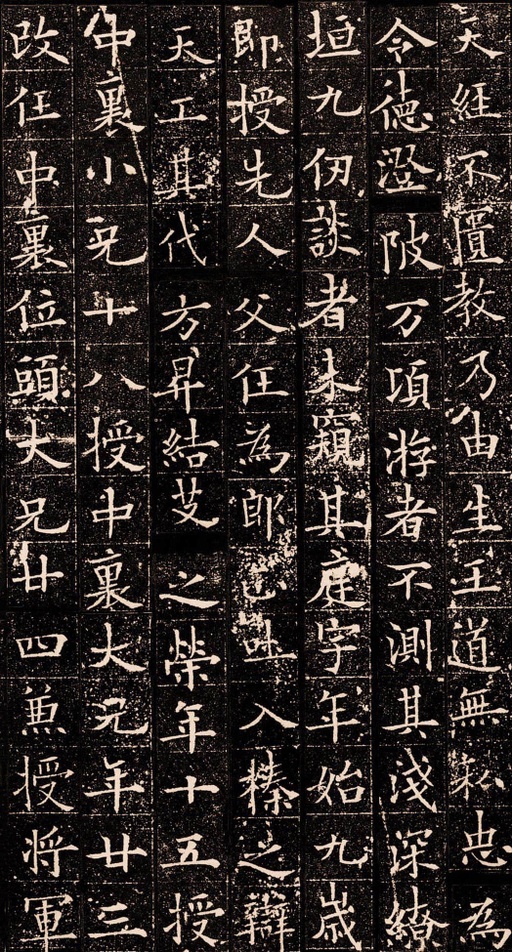 天經不匱教乃由生王道無私忠為
令德澄陂万項游者不測其淺深繚
垣九仞談者未窺其庭宇年始九歲
即授先人父任為郎吐入榛之辯
天工其代方昇結艾之榮年十五授
中裏小兄十八授中裏大兄年廿三
改任中裏位頭大兄廿四兼授将軍